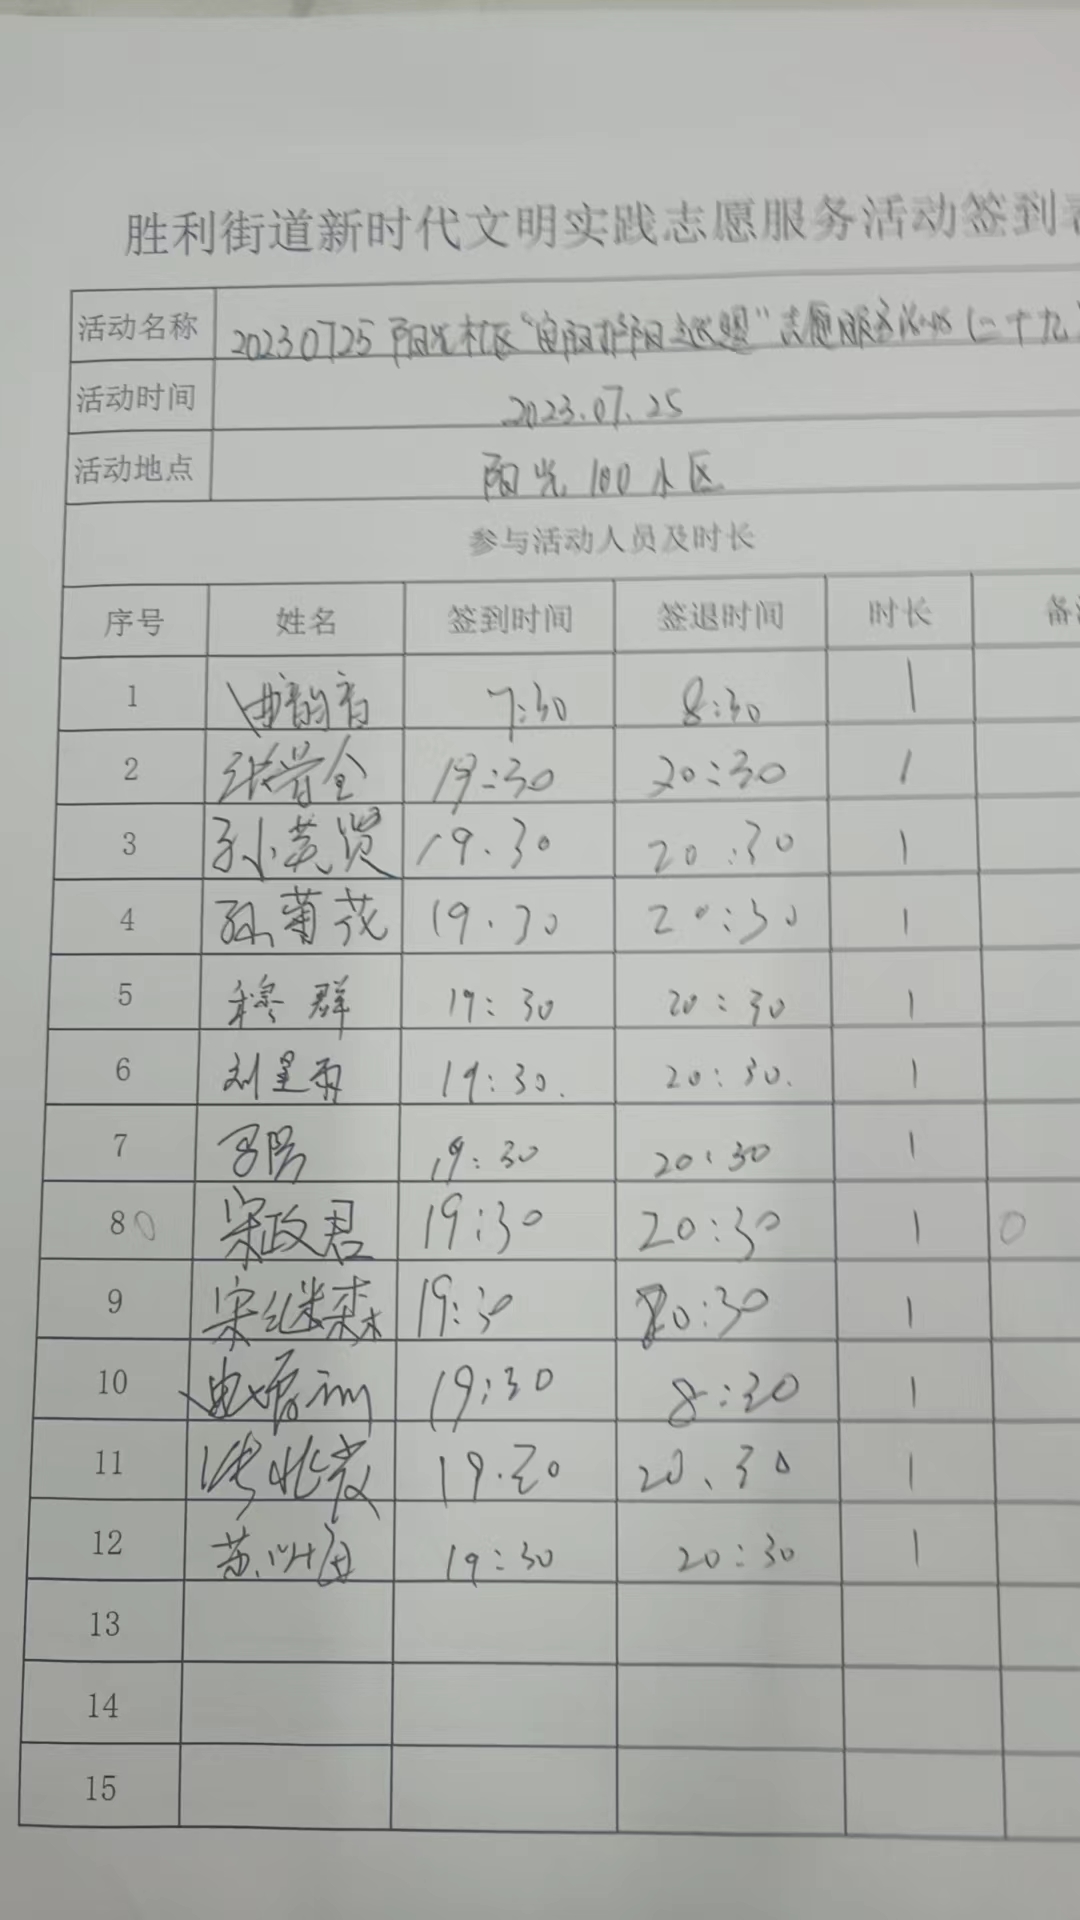 胜利街道新时代文明实践志愿服务活动签到表
活动名称 20230725 阳光社区“ ”志愿服务活动(二十九)
活动时间 2023.07.25
活动地点 阳光100小区
参与活动人员及时长
序号 姓名 签到时间 签退时间 时长 备注
1 曲韵音 7:30 8:30 1
2 19:30 20:30 1
3 孙英贤 19.30 20:30 1
4 孙菊花 19.30 20:30 1
5 穆群 19:30 20:30 1
6 刘呈雨 19:30. 20:30. 1
7 19:30 20:30 1
8 0 宋政君 19:30 20:30 1 0
9 宋继森 19:30 20:30 1
10 19:30 8:30 1
11 19.30 20.30 1
12 19:30 20:30 1
13
14
15